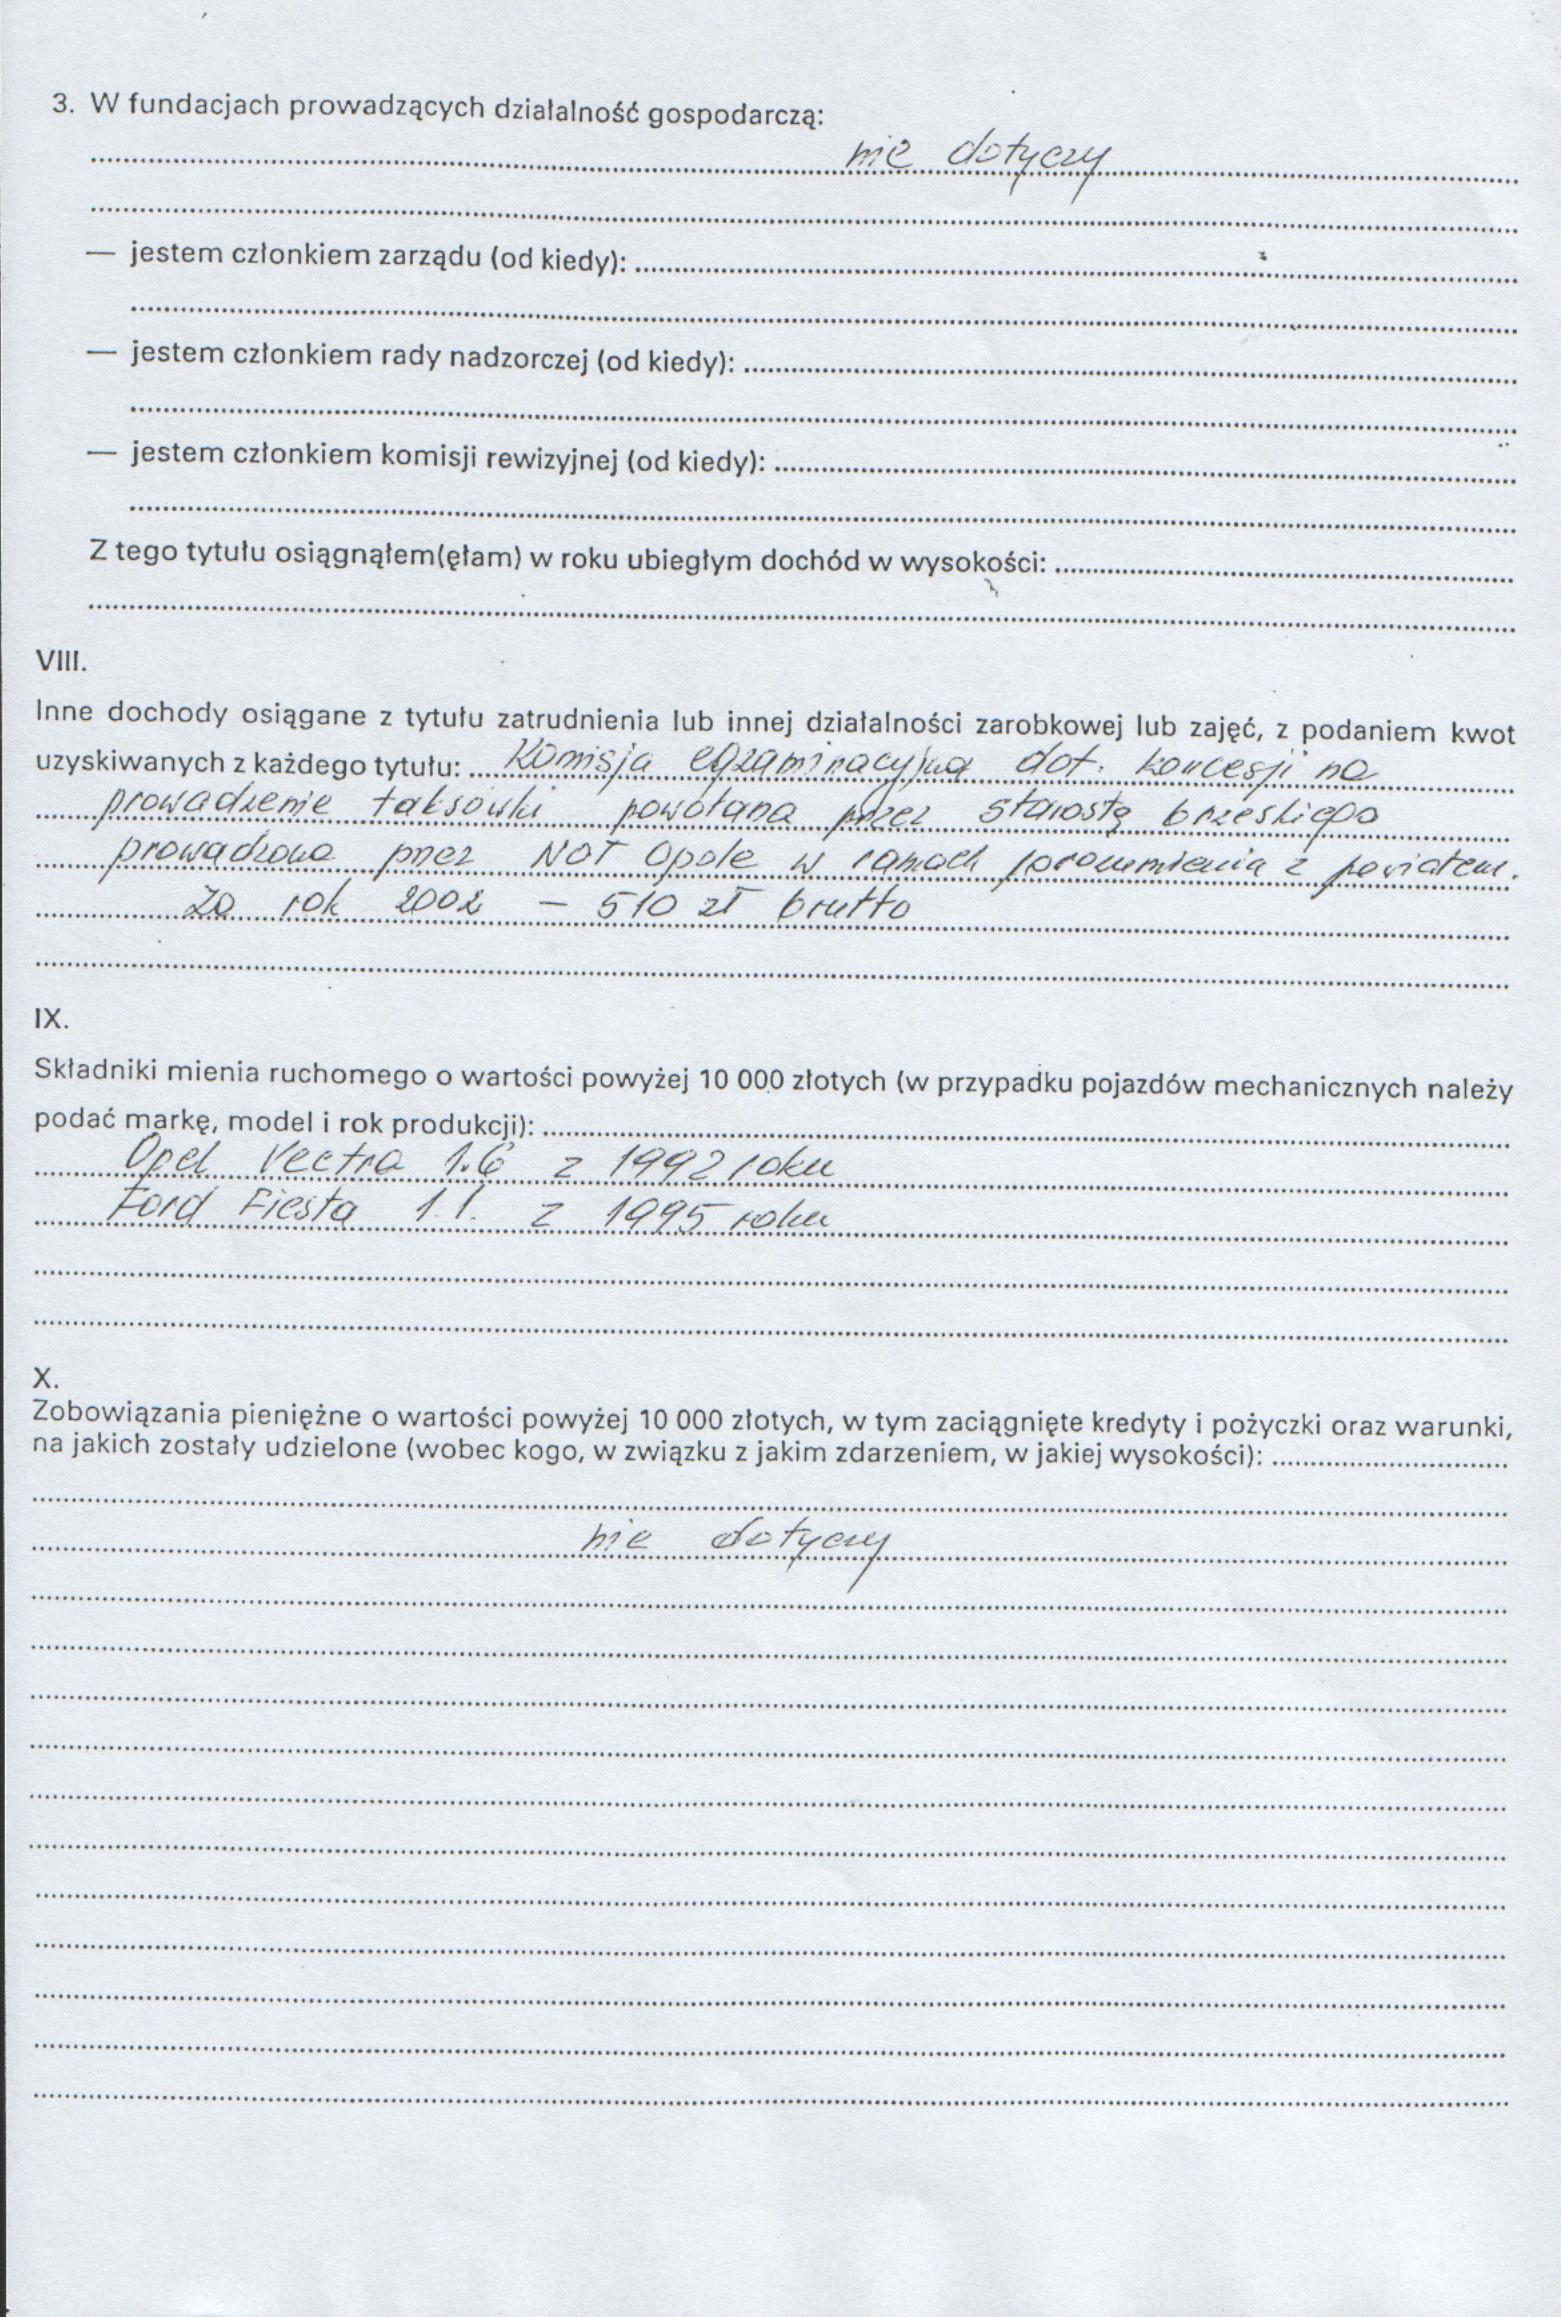 3. W fundacjach prowadzących działalność gospodarczą:
nie dotyczy
— jestem członkiem zarządu (od kiedy):
— jestem członkiem rady nadzorczej (od kiedy):
— jestem członkiem komisji rewizyjnej (od kiedy):
Z tego tytułu osiągnąłem(ęłam) w roku ubiegłym dochód w wysokości:
VIII.
Inne dochody osiągane z tytułu zatrudnienia lub innej działalności zarobkowej lub zajęć, z podaniem kwot
uzyskiwanych z każdego tytułu: Komisja egzaminacyjna dot. koncesji na
prowadzenie taksówki powołana przez starostę brzeskiego
prowadzona przez NOT Opole w ramach porozumienia z powiatem.
Za rok 2002 – 510 zł brutto
IX.
Składniki mienia ruchomego o wartości powyżej 10 000 złotych (w przypadku pojazdów mechanicznych należy
podać markę, model i rok produkcji):
Opel Vectra 1.6 z 1992 roku
Ford Fiesta 1.1. z 1995 roku
X.
Zobowiązania pieniężne o wartości powyżej 10 000 złotych, w tym zaciągnięte kredyty i pożyczki oraz warunki,
na jakich zostały udzielone (wobec kogo, w związku z jakim zdarzeniem, w jakiej wysokości):
nie dotyczy